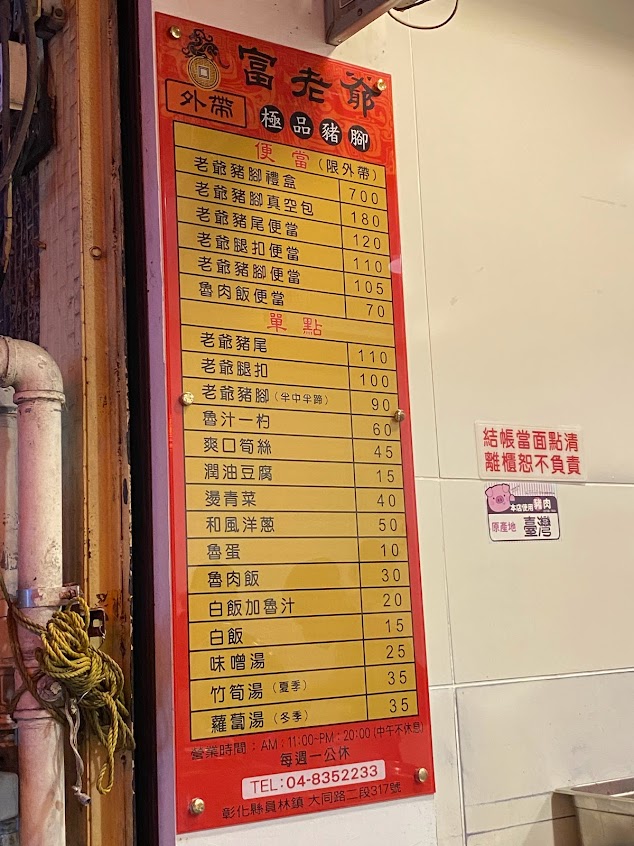 富老爺
外帶
極品豬腳
便當(限外帶)
老爺豬腳禮盒 700
老爺豬腳真空包 180
老爺豬尾便當 120
老爺腿扣便當 110
老爺豬腳便當 105
魯肉飯便當 70
單點
老爺豬尾 110
老爺腿扣 100
老爺豬腳(半中半蹄) 90
魯汁一杓 60
爽口筍絲 45
潤油豆腐 15
燙青菜 40
和風洋蔥 50
魯蛋 10
魯肉飯 30
白飯加魯汁 20
白飯 15
味噌湯 25
竹筍湯(夏季) 35
蘿蔔湯(冬季) 35
營業時間：AM：11:00-PM：20:00(中午不休息)
每週一公休
TEL:04-8352233
彰化縣員林鎮 大同路二段317號
結帳當面點清
離櫃恕不負責
本店使用豬肉
原產地 臺灣